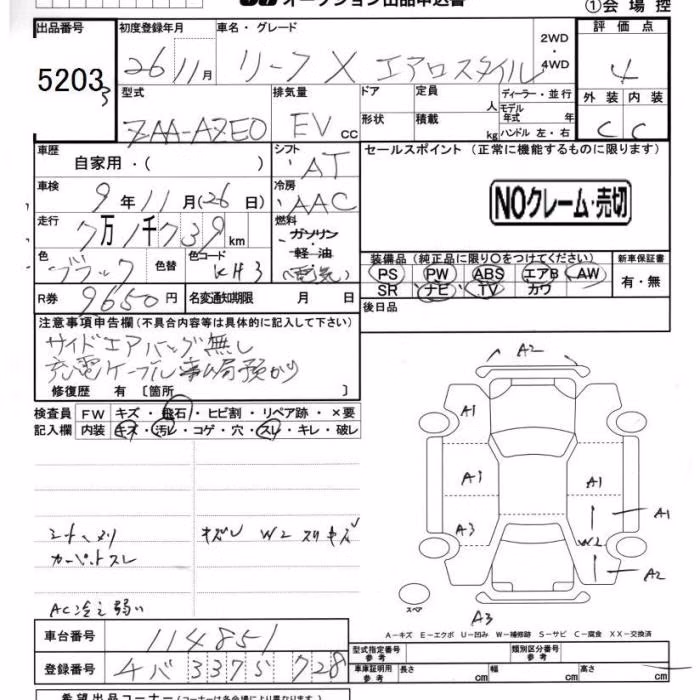 オークション出品申込書
①会場控
出品番号 初度登録年月 車名・グレード 2WD・4WD 評価点
52033 26 11月 リーフ X エアロスタイル 4
型式 排気量 ドア 定員 人 ディーラー・並行 外装 内装
ZAA-AZE0 EV cc 形状 積載 kg モデル年式 年 ハンドル 左・右 C C
車歴 シフト セールスポイント (正常に機能するものに限ります)
自家用・( ) AT
車検 冷房
9年11月(26日) AAC NOクレーム・売切
走行 燃料
7万1千739km ガソリン・軽油
色 色替 色コード 装備品 (純正品に限り○をつけてください) 新車保証書
ブラック KH3 (電気) PS PW ABS エアB AW 有・無
SR ナビ TV カワ
R券 9650円 名変通知期限 月 日 後日品
注意事項申告欄 (不具合内容等は具体的に記入して下さい)
サイドエアバッグ無し
充電ケーブル事務局預かり
修復歴 有 〔箇所 〕
検査員 FW キズ・飛石・ヒビ割・リペア跡・×要
記入欄 内装 キズ・汚レ・コゲ・穴・スレ・キレ・破レ
A2
A1
A1 A1
A3 A1
W2
A2
スペア
A3
シートヘタリ キズU W2 スリキズ
カーペットスレ
AC冷え弱い
A-キズ E-エクボ U-凹み W-補修跡 S-サビ C-腐食 XX-交換済
車台番号 114851 型式指定番号 参考 類別区分番号 参考
登録番号 333 728 車庫証明用 参考 長さ cm 幅 cm 高さ cm
希望出品コーナー